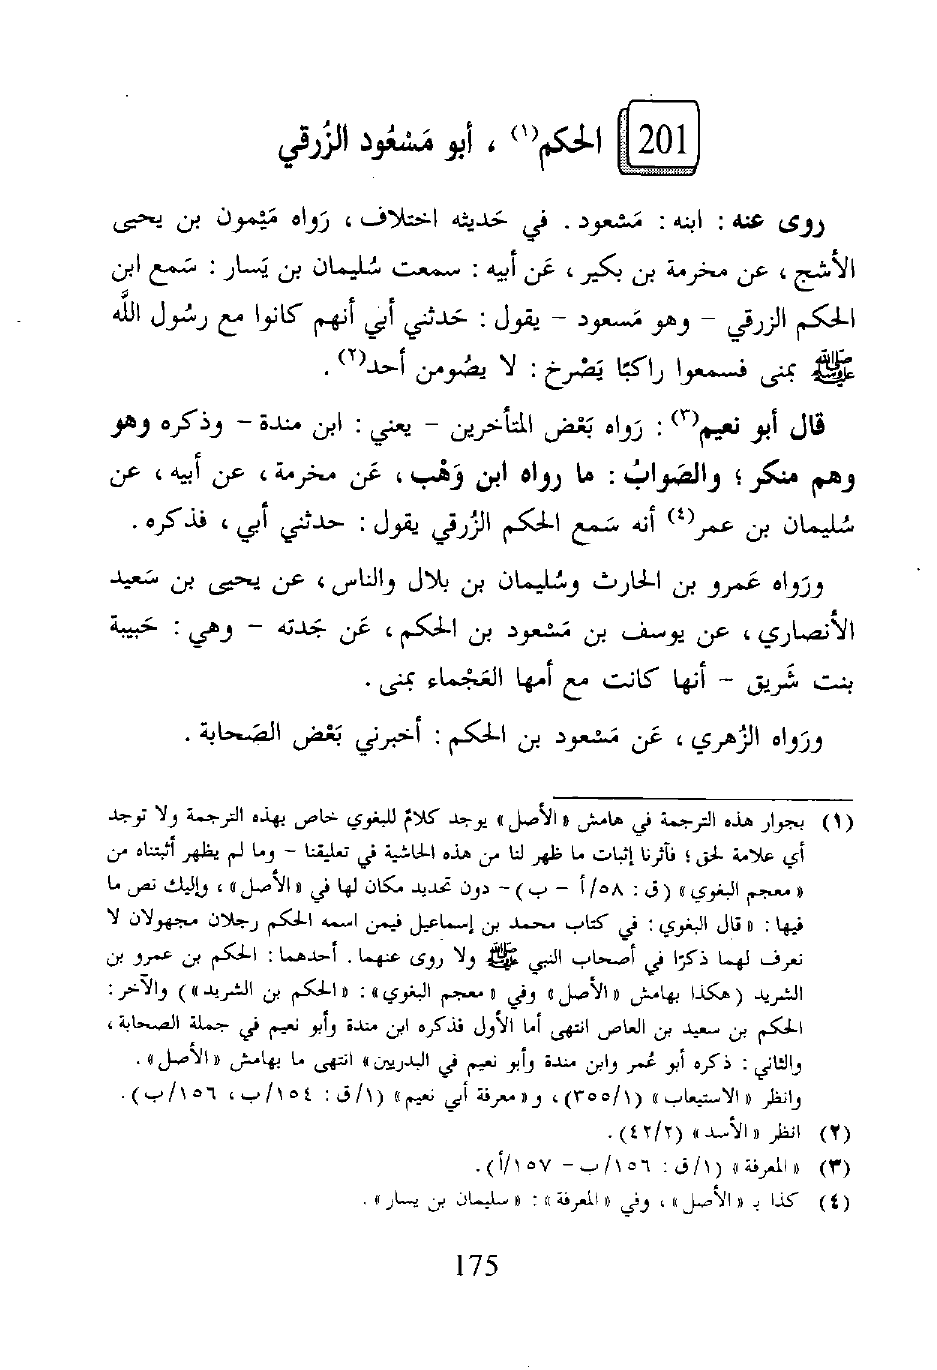 201 الحكم(١) ، أبو مَسْعُود الزُرقي
روى عنه : ابنه : مَسْعود . في حَديثه اختلاف ، رَواه مَيْمون بن يحيى
الأشج ، عن مخرمة بن بكير ، عَن أبيه : سمعت سُليمان بن يَسار : سَمع ابن
الحكم الزرقي - وهو مَسعود - يقول : حَدثني أبي أنهم كانوا مع رسُول اللَّه
ﷺ بمنى فسمعوا راكبًا يَصْرخ : لا يصُومن أحد(٢) .
قال أبو نعيم(٣) : رَواه بَعْض المتأخرين - يعني : ابن مندة - وذكره وهو
وهم منكر ؛ والصَوابُ : ما رواه ابن وَهْب ، عَن مخرمة ، عن أبيه ، عن
سُليمان بن عمر(٤) أنه سَمع الحكم الزُرقي يقول : حدثني أبي ، فذكره .
ورَواه عَمرو بن الحارث وسُليمان بن بلال والناس ، عن يحيى بن سَعيد
الأنصاري ، عن يوسف بن مَسْعود بن الحكم ، عَن جَدته - وهي : حَبيبة
بنت شَريق - أنها كانت مع أمها العَجْماء بمنى .
ورَواه الزُهري ، عَن مَسْعود بن الحكم : أخبرني بَعْض الصَحابة .
(١) بجوار هذه الترجمة في هامش «الأصل» يوجد كلامٌ للبغوي خاص بهذه الترجمة ولا توجد
أي علامة لحق ؛ فآثرنا إثبات ما ظهر لنا من هذه الحاشية في تعليقنا - وما لم يظهر أثبتناه من
«معجم البغوي» (ق : ٥٨/أ - ب) - دون تحديد مكان لها في «الأصل» ، وإليك نص ما
فيها : «قال البغوي : في كتاب محمد بن إسماعيل فيمن اسمه الحكم رجلان مجهولان لا
نعرف لهما ذكرًا في أصحاب النبي ﷺ ولا روى عنهما . أحدهما : الحكم بن عمرو بن
الشريد (هكذا بهامش «الأصل» وفي «معجم البغوي» : «الحكم بن الشريد») والآخر :
الحكم بن سعيد بن العاص انتهى أما الأول فذكره ابن مندة وأبو نعيم في جملة الصحابة ،
والثاني : ذكره أبو عُمر وابن مندة وأبو نعيم في البدريين» انتهى ما بهامش «الأصل» .
وانظر «الاستيعاب» (١/٣٥٥) ، و«معرفة أبي نعيم» (١/ق : ١٥٤/ب ، ١٥٦/ب) .
(٢) انظر «الأسد» (٢/٤٢) .
(٣) «المعرفة» (١/ق : ١٥٦/ب - ١٥٧/أ) .
(٤) كذا بـ «الأصل» ، وفي «المعرفة» : «سليمان بن يسار» .
175